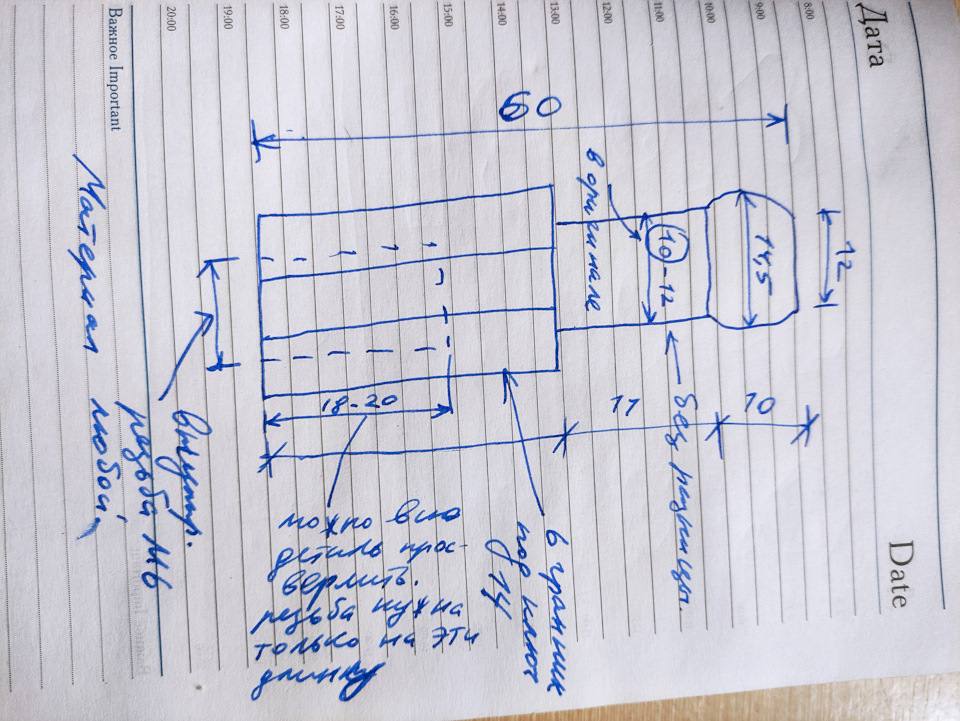 Дата
Date
8:00
9:00
10:00
11:00
12:00
13:00
14:00
15:00
16:00
17:00
18:00
19:00
20:00
Важное Important
60
12
14,5
10-12
в оригинале
← без разницы.
10
17
18-20
6 гранник
под ключ
14
можно всю
деталь прос-
верлить.
резьба нужна
только на эти
длинну
Внутр.
резьба М6
Материал любой.